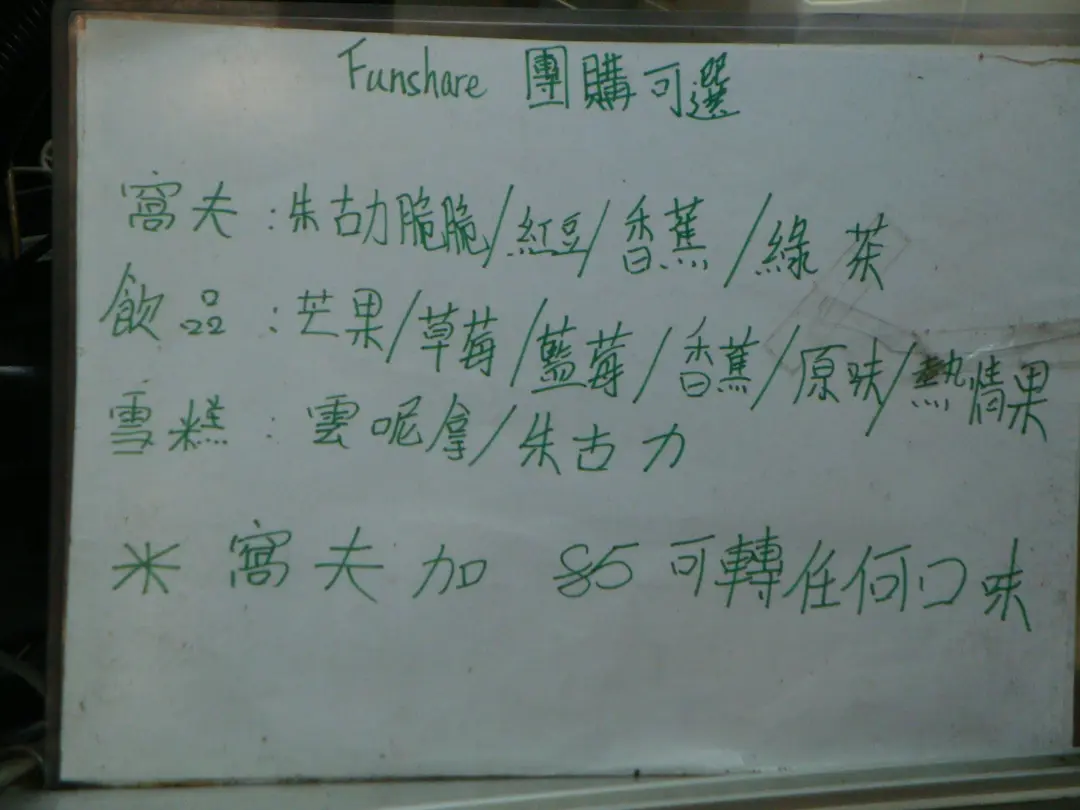 Funshare 團購可選
窩夫：朱古力脆脆/紅豆/香蕉/綠茶
飲品：芒果/草莓/藍莓/香蕉/原味/熱情果
雪糕：雲呢拿/朱古力
*窩夫加 $5 可轉任何口味